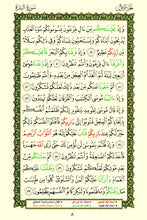 سورة البقرة
الجزء الأول
وَإِذْ نَجَّيْنَٰكُم مِّنْ ءَالِ فِرْعَوْنَ يَسُومُونَكُمْ سُوٓءَ ٱلْعَذَابِ
يُذَبِّحُونَ أَبْنَآءَكُمْ وَيَسْتَحْيُونَ نِسَآءَكُمْ وَفِى ذَٰلِكُم بَلَآءٌ مِّن
رَّبِّكُمْ عَظِيمٌ ٤٩ وَإِذْ فَرَقْنَا بِكُمُ ٱلْبَحْرَ فَأَنجَيْنَٰكُمْ
وَأَغْرَقْنَآ ءَالَ فِرْعَوْنَ وَأَنتُمْ تَنظُرُونَ ٥٠ وَإِذْ وَٰعَدْنَا مُوسَىٰٓ
أَرْبَعِينَ لَيْلَةً ثُمَّ ٱتَّخَذْتُمُ ٱلْعِجْلَ مِنۢ بَعْدِهِۦ وَأَنتُمْ ظَٰلِمُونَ
٥١ ثُمَّ عَفَوْنَا عَنكُم مِّنۢ بَعْدِ ذَٰلِكَ لَعَلَّكُمْ تَشْكُرُونَ ٥٢
وَإِذْ ءَاتَيْنَا مُوسَى ٱلْكِتَٰبَ وَٱلْفُرْقَانَ لَعَلَّكُمْ تَهْتَدُونَ ٥٣
وَإِذْ قَالَ مُوسَىٰ لِقَوْمِهِۦ يَٰقَوْمِ إِنَّكُمْ ظَلَمْتُمْ أَنفُسَكُم
بِٱتِّخَاذِكُمُ ٱلْعِجْلَ فَتُوبُوٓا۟ إِلَىٰ بَارِئِكُمْ فَٱقْتُلُوٓا۟ أَنفُسَكُمْ
ذَٰلِكُمْ خَيْرٌ لَّكُمْ عِندَ بَارِئِكُمْ فَتَابَ عَلَيْكُمْ إِنَّهُۥ هُوَ ٱلتَّوَّابُ ٱلرَّحِيمُ
٥٤ وَإِذْ قُلْتُمْ يَٰمُوسَىٰ لَن نُّؤْمِنَ لَكَ حَتَّىٰ نَرَى ٱللَّهَ جَهْرَةً
فَأَخَذَتْكُمُ ٱلصَّٰعِقَةُ وَأَنتُمْ تَنظُرُونَ ٥٥ ثُمَّ بَعَثْنَٰكُم
مِّنۢ بَعْدِ مَوْتِكُمْ لَعَلَّكُمْ تَشْكُرُونَ ٥٦ وَظَلَّلْنَا عَلَيْكُمُ
ٱلْغَمَامَ وَأَنزَلْنَا عَلَيْكُمُ ٱلْمَنَّ وَٱلسَّلْوَىٰ كُلُوا۟ مِن طَيِّبَٰتِ
مَا رَزَقْنَٰكُمْ وَمَا ظَلَمُونَا وَلَٰكِن كَانُوٓا۟ أَنفُسَهُمْ يَظْلِمُونَ ٥٧
٨